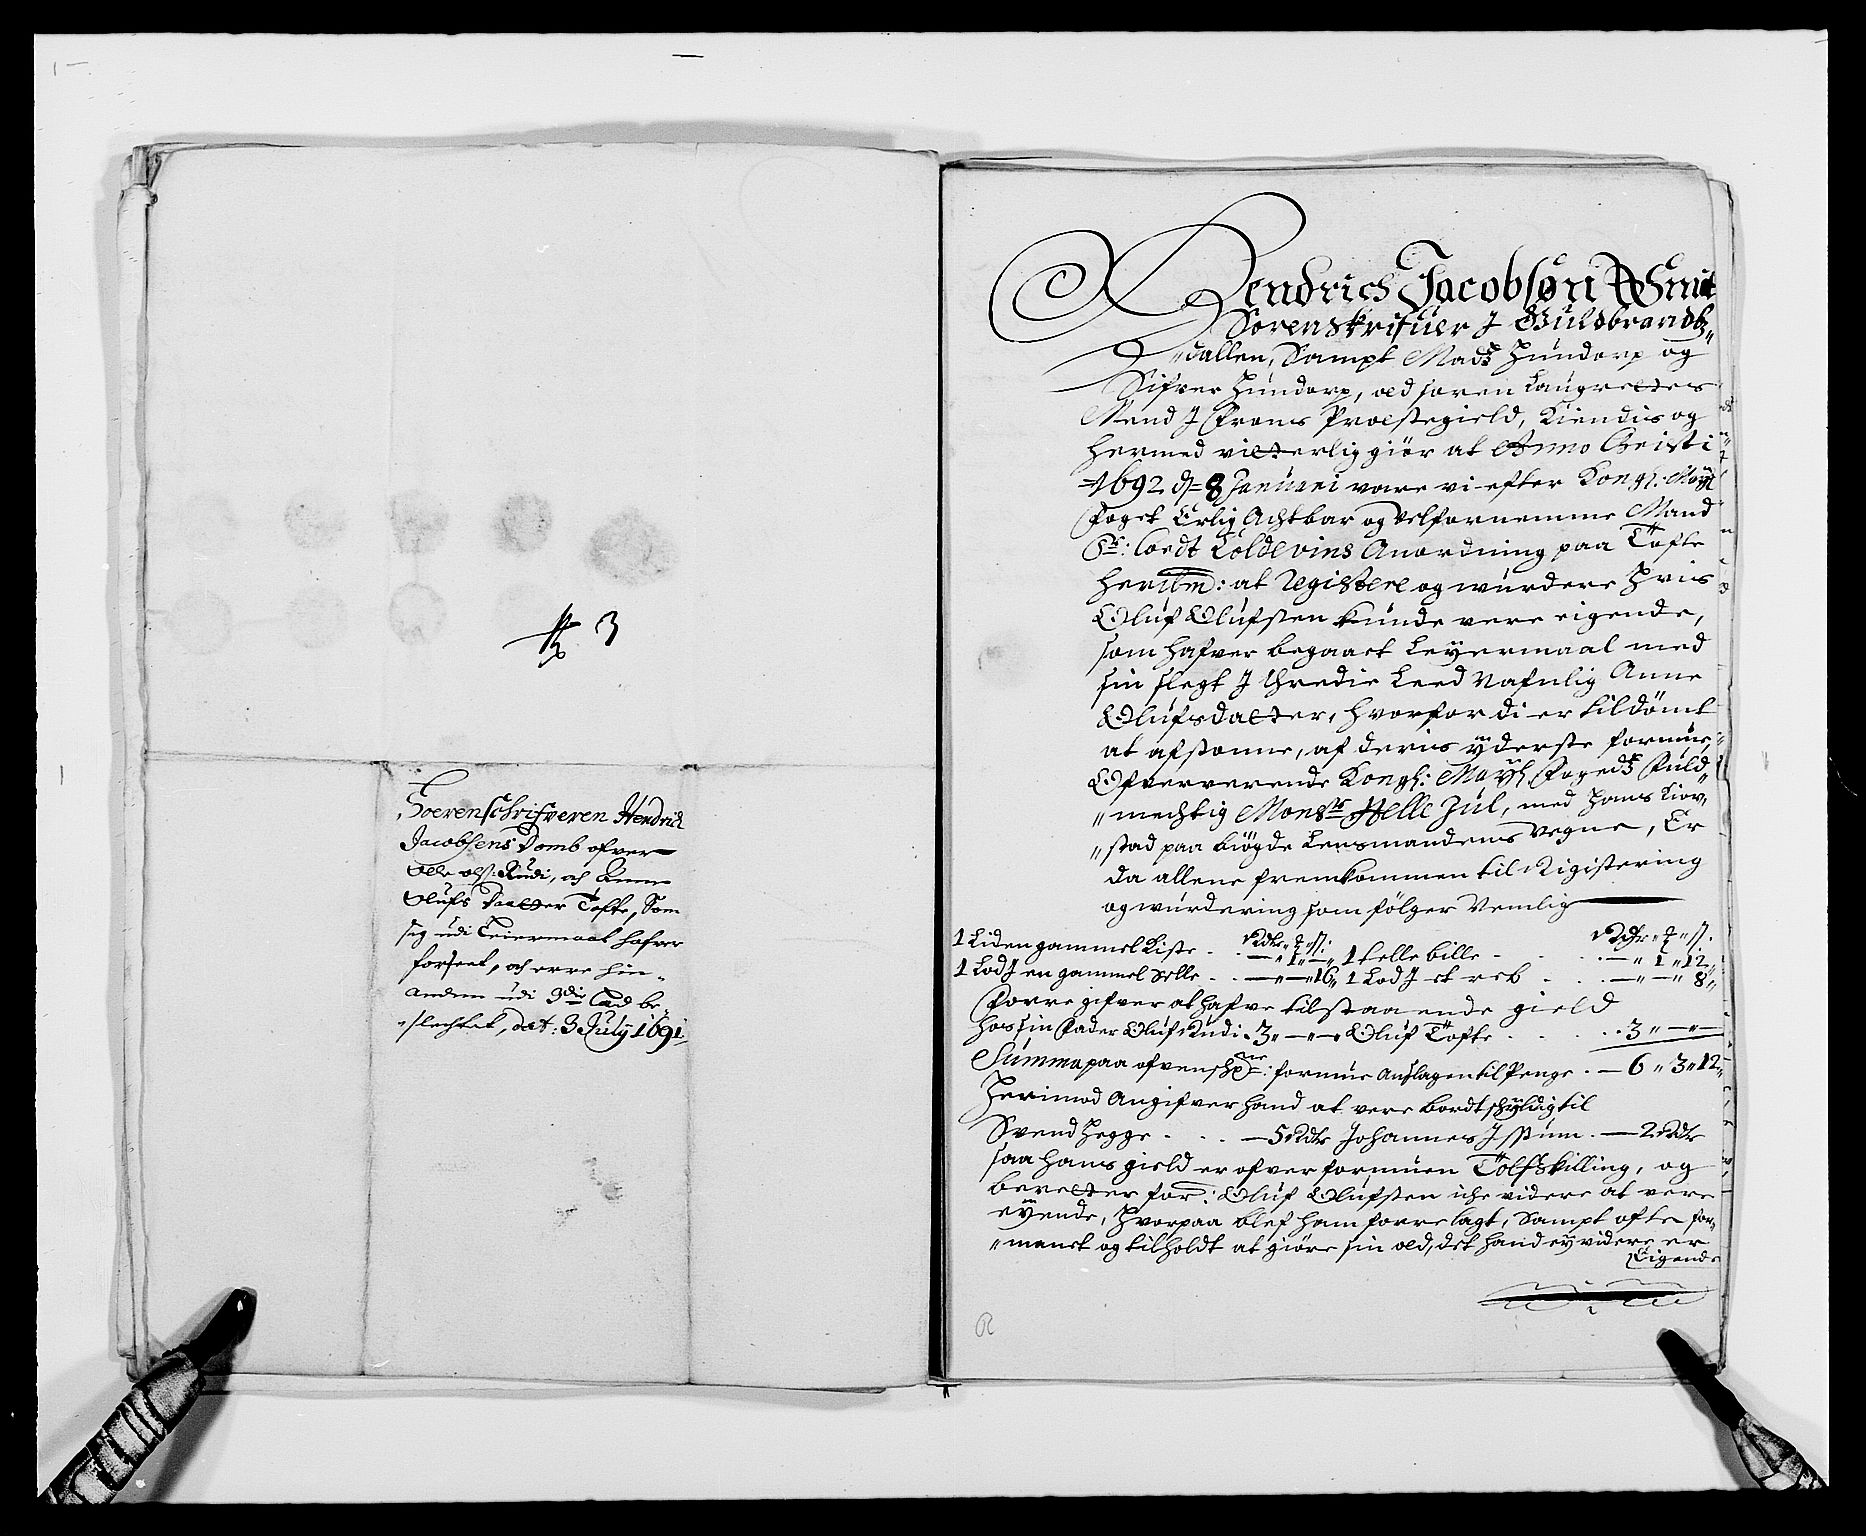 N 3
Soerenschrifveren Hendrich
Jacobsens Domb ofver
Olle Olß: Rudi, och Anne
Olufs Daatter Tofte, Som
sig udi Leiermaal hafver
forseet, och erre hin¬
anden udi 3die Led be¬
slechtet, dat: 3 July 1691
Hendrich Jacobsøn Smit
Sorenskrifuer J Guldbrandtz¬
dallen, Sampt Madtz Hundorp og
Sifver Hundorp, Edsoren Laugrettes
Mend J Frons Præstegield, Kiendis og
hermed vitterlig giør at Anno Christi
1692 d= 8 Januari vare vi efter Kongl: Mayst
Foget Erlig Achtbar og velfornemme Mand
Sr: Cordt Coldevins Anordning paa Töfte
her ibm: at Registere og wurdere Hvis
Oluf Olufsen kunde vere eigende,
som hafver begaaet Leyermaal med
sin slegt J thredie Leed Nafnlig Anne
Olufsdatter, hvorfor di er tildömt
at afsonne, af deris yderste formue,
Ofververende Kongl: Mayst Fogedtz Fuld¬
mechtig Monsr Pelle Jul, med Hans Kior¬
stad paa bögde Lensmandens Vegne, Er
da allene fremkommen til Rigistering
og wurdering som følger Nemlig
Rdr „ ß: Rdr „ ß.
1 Liden gammel Kiste . . — „ 1 „ — „ 1 felle bille . . — „ 1 „ 12 „
1 Lod J en gammel Selle . . — „ — „ 16 „ 1 Lod J et reb . . — „ — „ 8 „
Forregifver at hafve tilstaaende gield
hos sin Fader Oluf Rudi . 3 „ — „ — „ Oluf Töfte . . . . 3 „ — „ —
Summa paa ofvenschrne: formue Anslagen til Penge . — 6 „ 3 „ 12 „
Herimod Angifver hand at vere bordt skyldig til
Svend Hegge . . . — 5 Rdr Johannes . — 2 Rdr
saa hans gield er ofver formuen Tolf Skilling, og
beretter for: Oluf Olufsen iche videre at vere
eyende, Hvorpaa blef ham forrelagt, Sampt ofte for¬
manet og tilholdt at giöre sin Eed, det hand ey videre er
Eigende